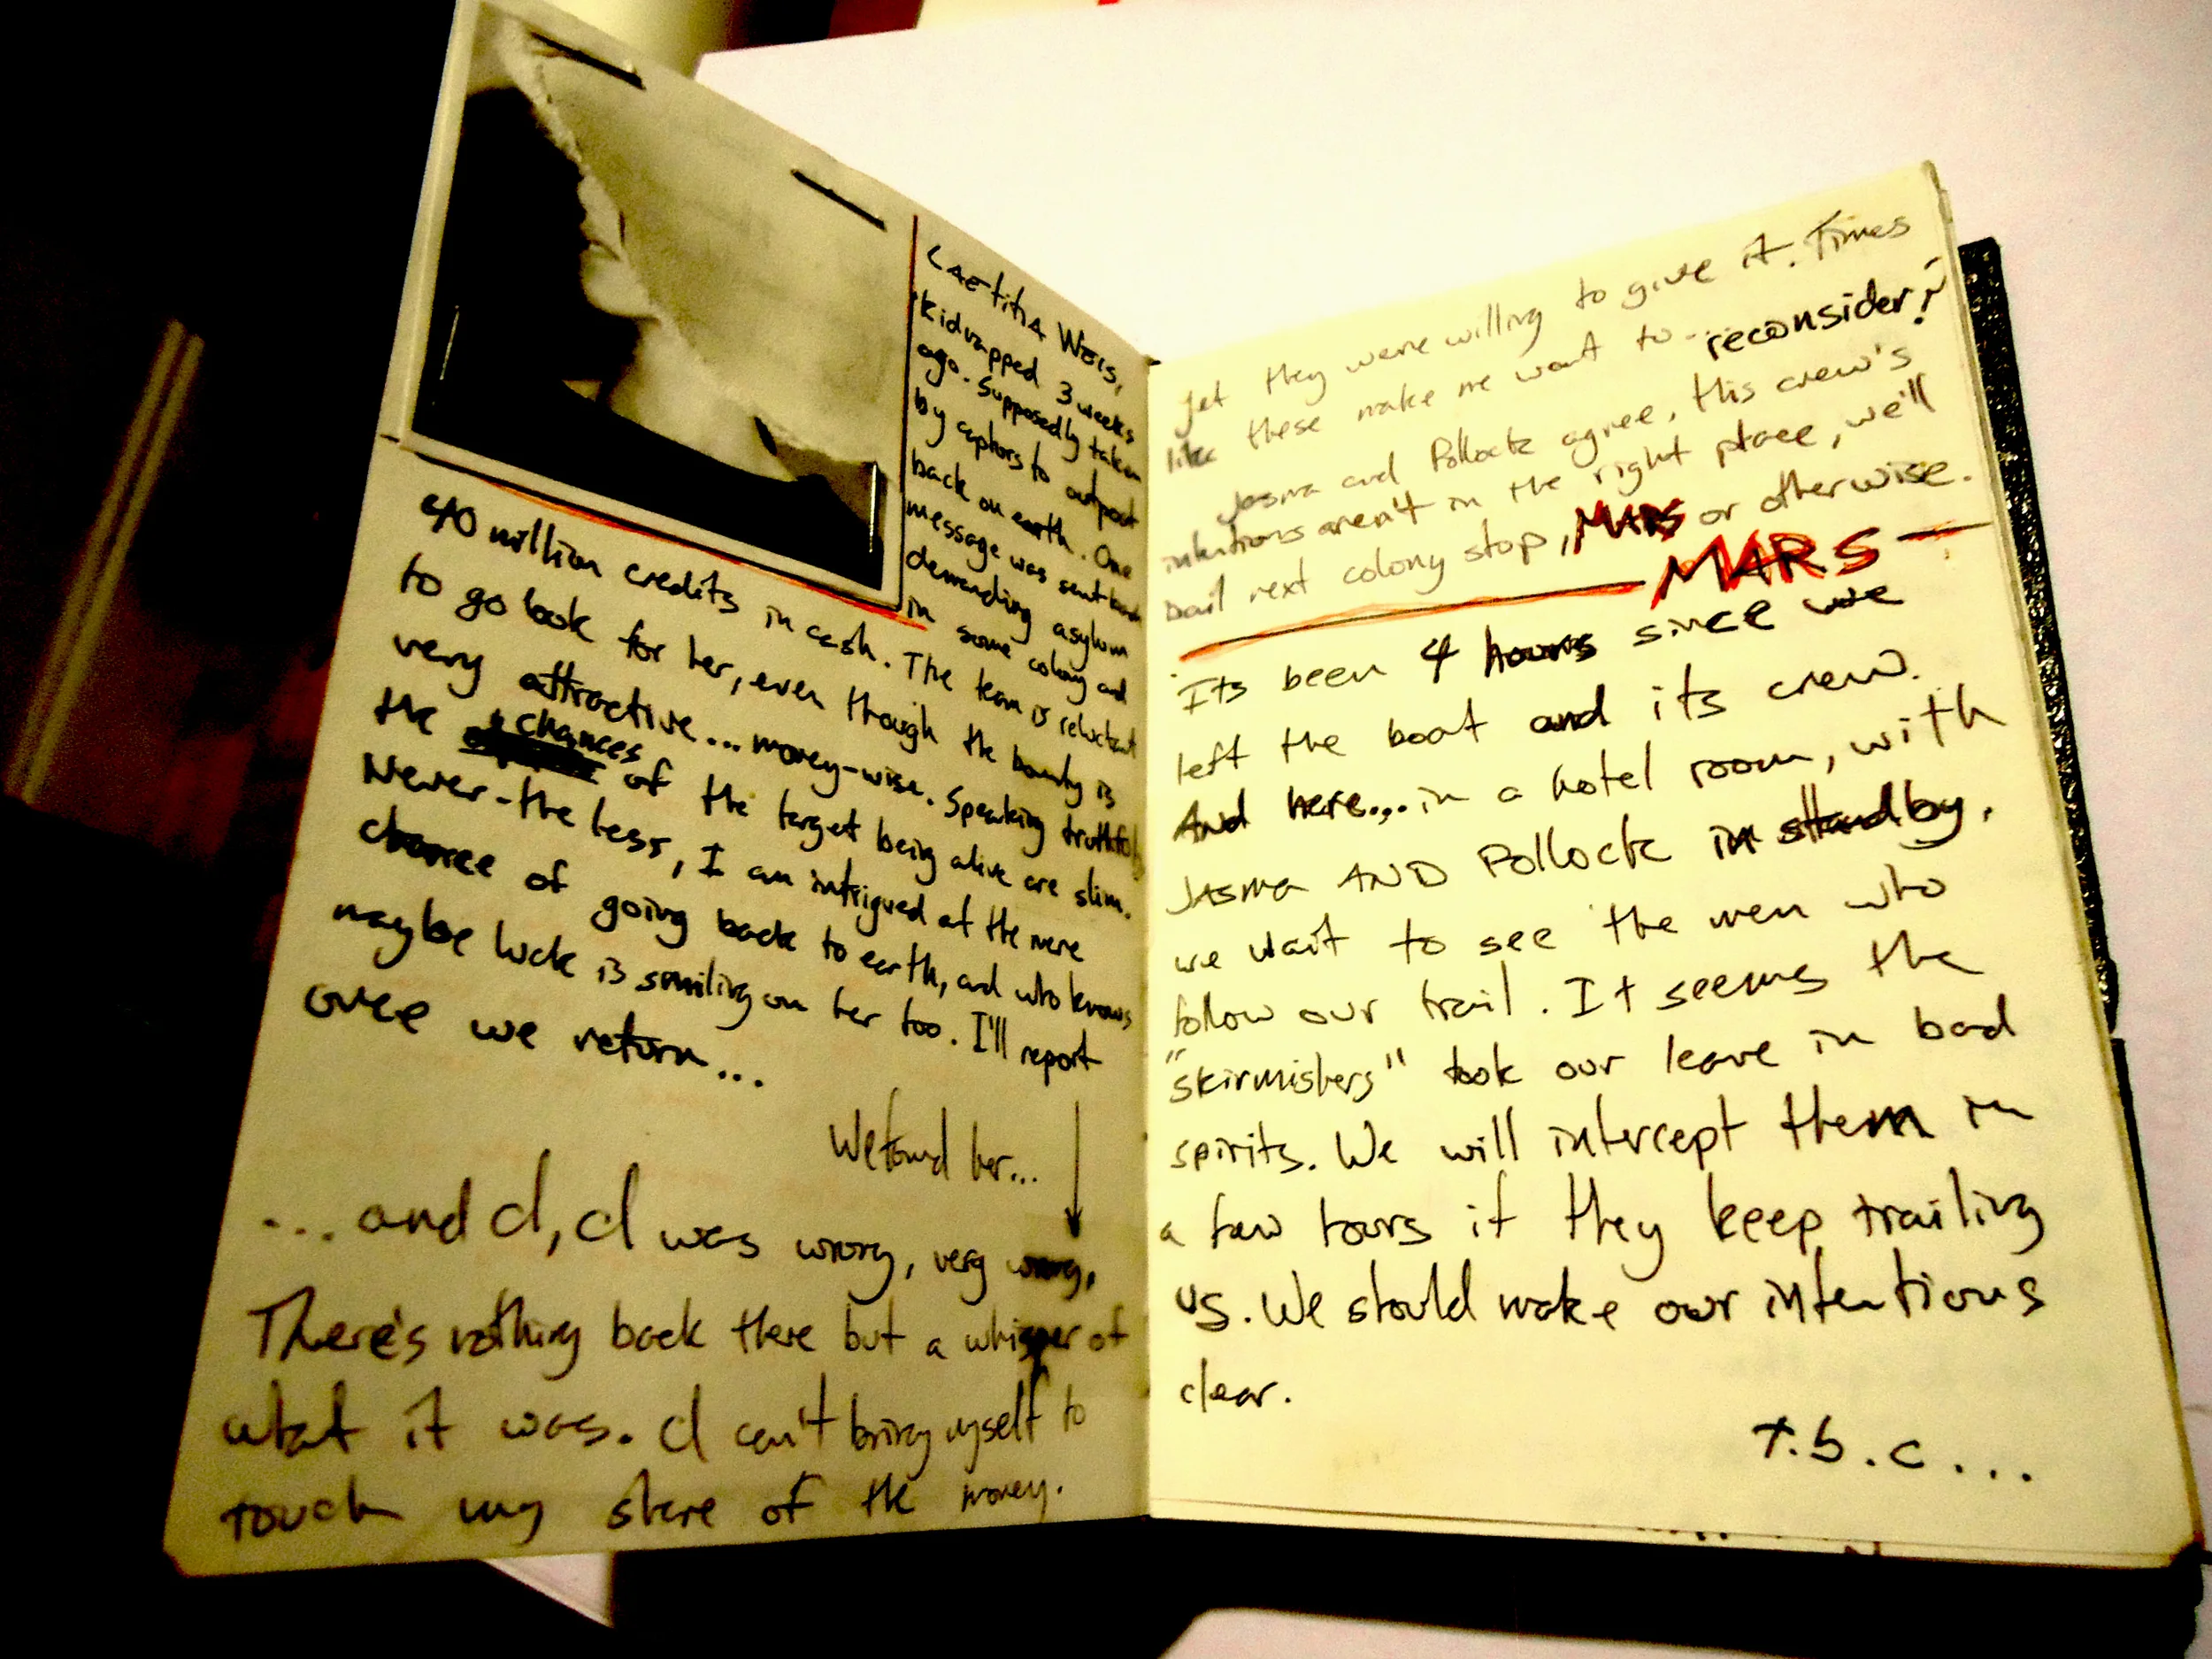 Laetitia Weiss,
kidnapped 3 weeks
ago. Supposedly taken
by captors to outpost
back on earth. One
message was sent back
demanding asylum
in some colony and
40 million credits in cash. The team is reluctant
to go look for her, even though the bounty is
very attractive... money-wise. Speaking truthfully
the chances of the target being alive are slim.
Never-the less, I am intrigued at the mere
chance of going back to earth, and who knows
maybe luck is smiling on her too. I'll report
once we return...
We found her...
... and I, I was wrong, very wrong,
There's nothing back there but a whisper of
what it was. I can't bring myself to
touch my share of the money.
yet they were willing to give it. Times
like these make me want to... reconsider?
Jasma and Pollock agree, this crew's
intentions aren't in the right place, we'll
bail next colony stop, MARS or otherwise.
MARS
Its been 4 hours since we
left the boat and its crew.
And here... in a hotel room, with
JASMA AND Pollock in standby.
we wait to see the men who
follow our trail. It seems the
"skirmishers" took our leave in bad
spirits. We will intercept them in
a few hours if they keep trailing
us. We should make our intentions
clear.
T.b.c...